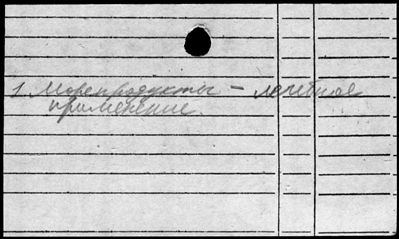 1. Морепродукты – лечебное
применение.